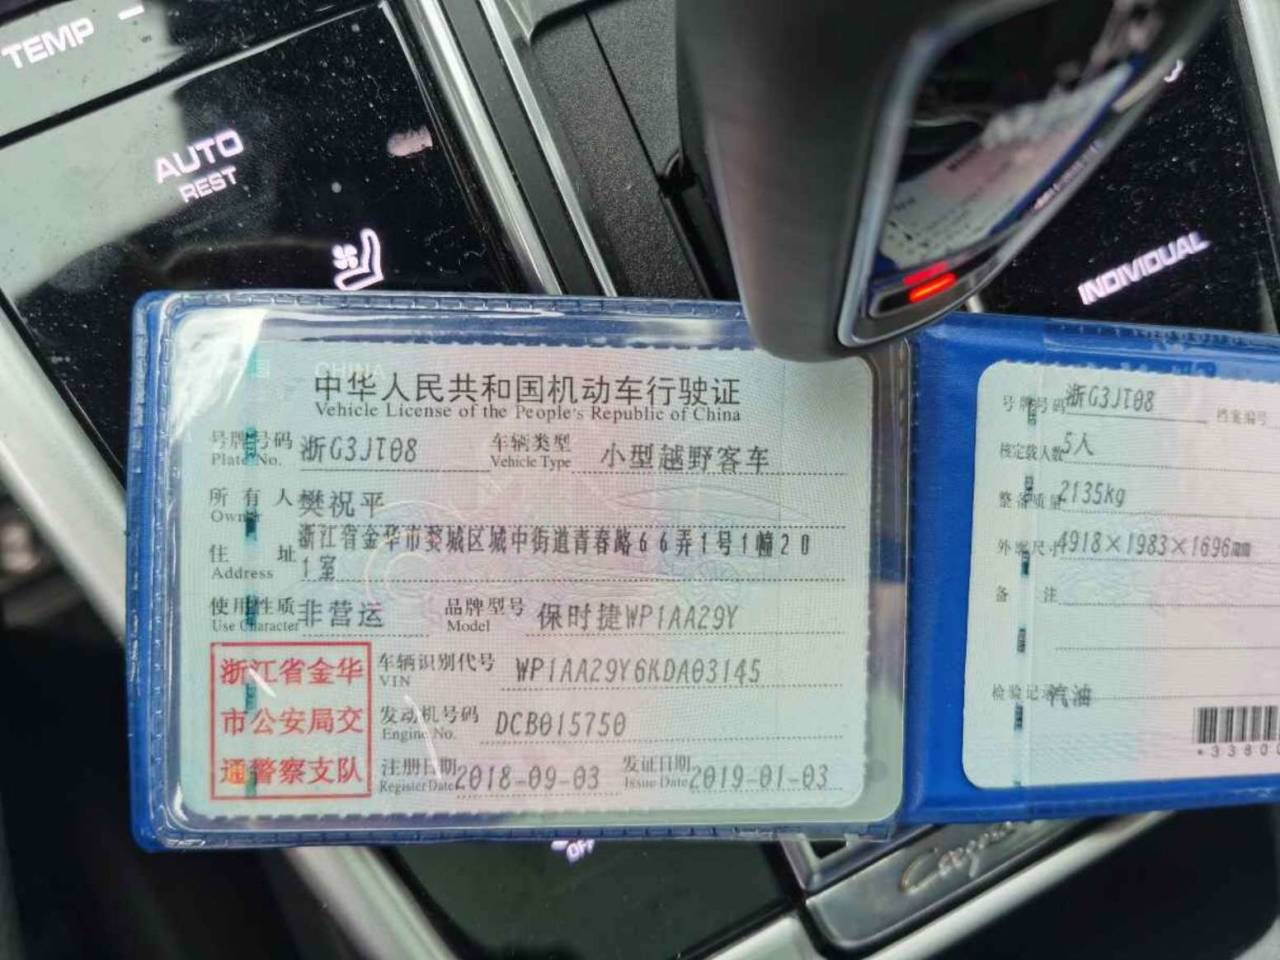 TEMP –
AUTO
REST
INDIVIDUAL
CHINA
中华人民共和国机动车行驶证
Vehicle License of the People's Republic of China
号牌号码 浙G3JT08 车辆类型 小型越野客车
Plate No. Vehicle Type
所有人 樊祝平
Owner
住址 浙江省金华市婺城区城中街道青春路66弄1号1幢20
1室
Address
使用性质 非营运 品牌型号 保时捷WP1AA29Y
Use Character Model
浙江省金华
市公安局交
通警察支队
车辆识别代号 WP1AA29Y6KDA03145
VIN
发动机号码 DCB015750
Engine No.
注册日期 2018-09-03 发证日期 2019-01-03
Register Date Issue Date
号牌号码 浙G3JT08 档案编号
核定载人数 5人
整备质量 2135kg
外廓尺寸 4918×1983×1696mm
备注
检验记录 汽油
*3380
OFF